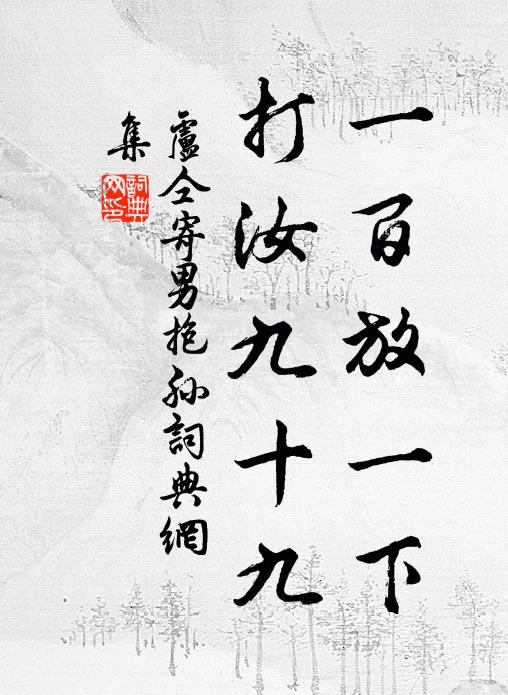 一百放一下
打汝九十九
盧仝寄男抱孫詞典網
集
詞典網印